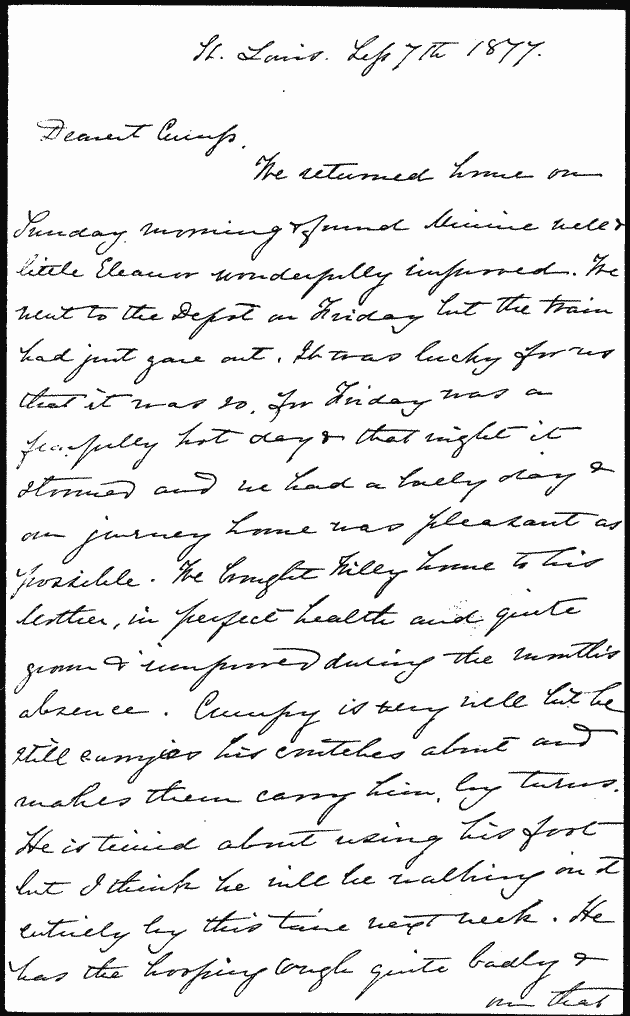 St. Louis. Sep 7th 1877.
Dearest Cump,
We returned home on
Sunday morning & found Minnie well &
little Eleanor wonderfully improved. We
went to the Depot on Friday but the train
had just gone out. It was lucky for us
that it was so, for Friday was a
fearfully hot day & that night it
stormed and we had a lovely day &
our journey home was pleasant as
possible. We brought Willy home to his
Mother, in perfect health and quite
grown & improved during the months
absence. Cumpy is very well but he
still carries his crutches about and
makes them carry him, by turns.
He is timid about using his foot
but I think he will be walking on it
entirely by this time next week. He
has the hooping cough quite badly &
on that